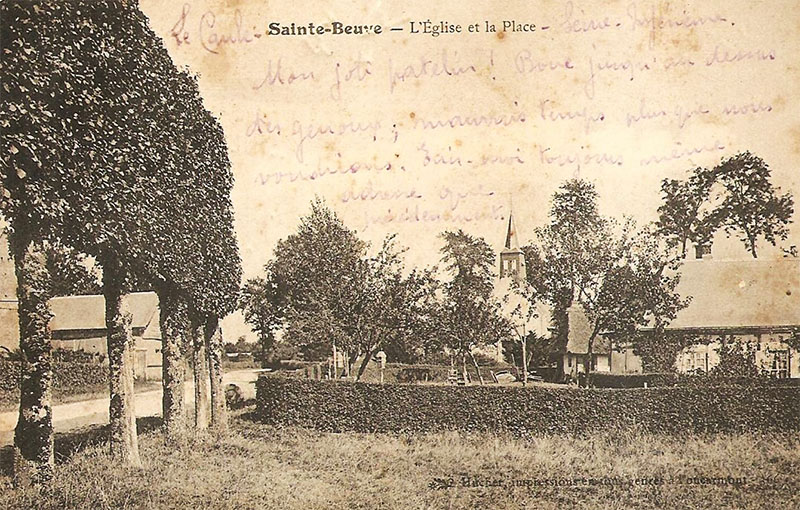 Le Caule - Sainte-Beuve — L'Église et la Place - Seine-Inférieure.
Mon joli patelin ! Boue jusqu'au dessus
des genoux, mauvais temps plus que nous
voudrions. toujours même
adresse que
précédemment.
impressions en tous genres à Foucarmont